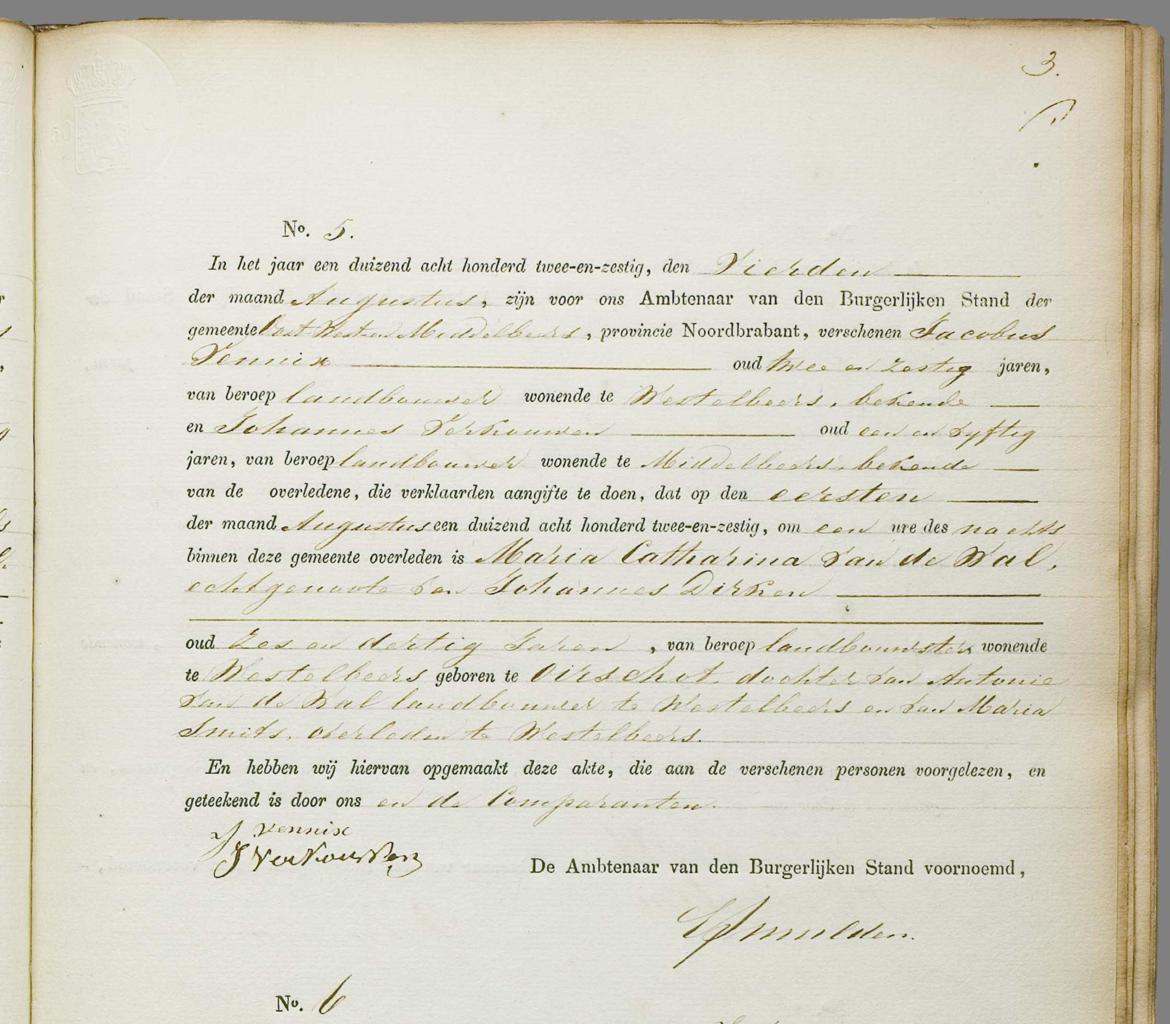 3.
No. 5.
In het jaar een duizend acht honderd twee-en-zestig, den Vierden
der maand Augustus, zijn voor ons Ambtenaar van den Burgerlijken Stand der
gemeente Oost West en Middelbeers, provincie Noordbrabant, verschenen Jacobus
Vennix oud twee en zestig jaren,
van beroep landbouwer wonende te Westelbeers, bekende
en Johannes Verkouwen oud een en vyftig
jaren, van beroep landbouwer wonende te Middelbeers, bekende
van de overledene, die verklaarden aangifte te doen, dat op den eersten
der maand Augustus een duizend acht honderd twee-en-zestig, om een ure des nachts
binnen deze gemeente overleden is Maria Catharina van de Wal,
echtgenoote van Johannes Dirken
oud Zes en dertig Jaren, van beroep landbouwster wonende
te Westelbeers geboren te Oirschot, dochter van Antonie
van de Wal landbouwer te Westelbeers en van Maria
Smits, overleden te Westelbeers.
En hebben wij hiervan opgemaakt deze akte, die aan de verschenen personen voorgelezen, en
geteekend is door ons en de Comparanten.
J Vennix
J Verkouwen
De Ambtenaar van den Burgerlijken Stand voornoemd,
No. 6